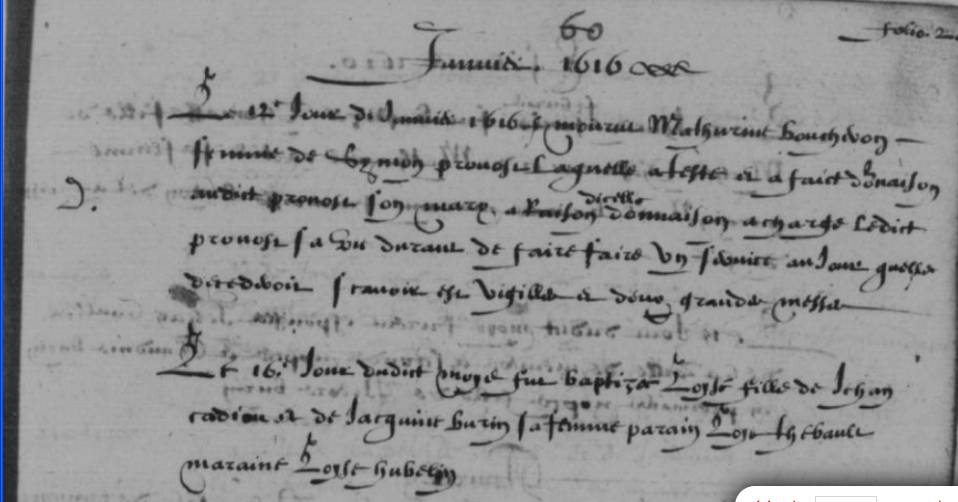 60
folio 2
Janvier. 1616
Le 12e Jour de Janvier 1616 mourut Mathurine bouch
femme de Symon provost laquelle a testé et a faict donnaison
audict provost son mary a Raison dicelle donnaison a chargé Ledict
provost sa vie durant de faire faire Un service au Jour quelle
decedroit scavoir est Vigilles et deux grandes messes
Le 16e Jour dudict moys fut baptizée Loyse fille de Jehan
cadiou et de Jacquine burin sa femme parain Loys thebault
maraine Loyse hubelin